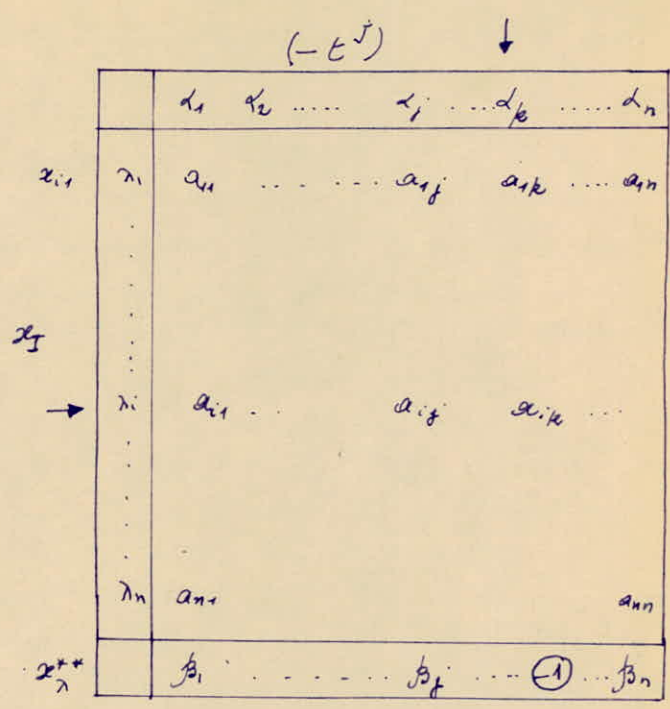 (- t^J) ↓
α₁ α₂ ..... α_j ....α_k ..... α_n
x_{i1} λ₁ a₁₁ ... ... a_{1j} a_{1k} .... a_{1n}
x_I
→ λ_i a_{i1} .. a_{ij} a_{ik} ...
λ_n a_{n1} a_{nn}
x_λ^{**} β₁ . - . - - . β_j .... -1 ... β_n